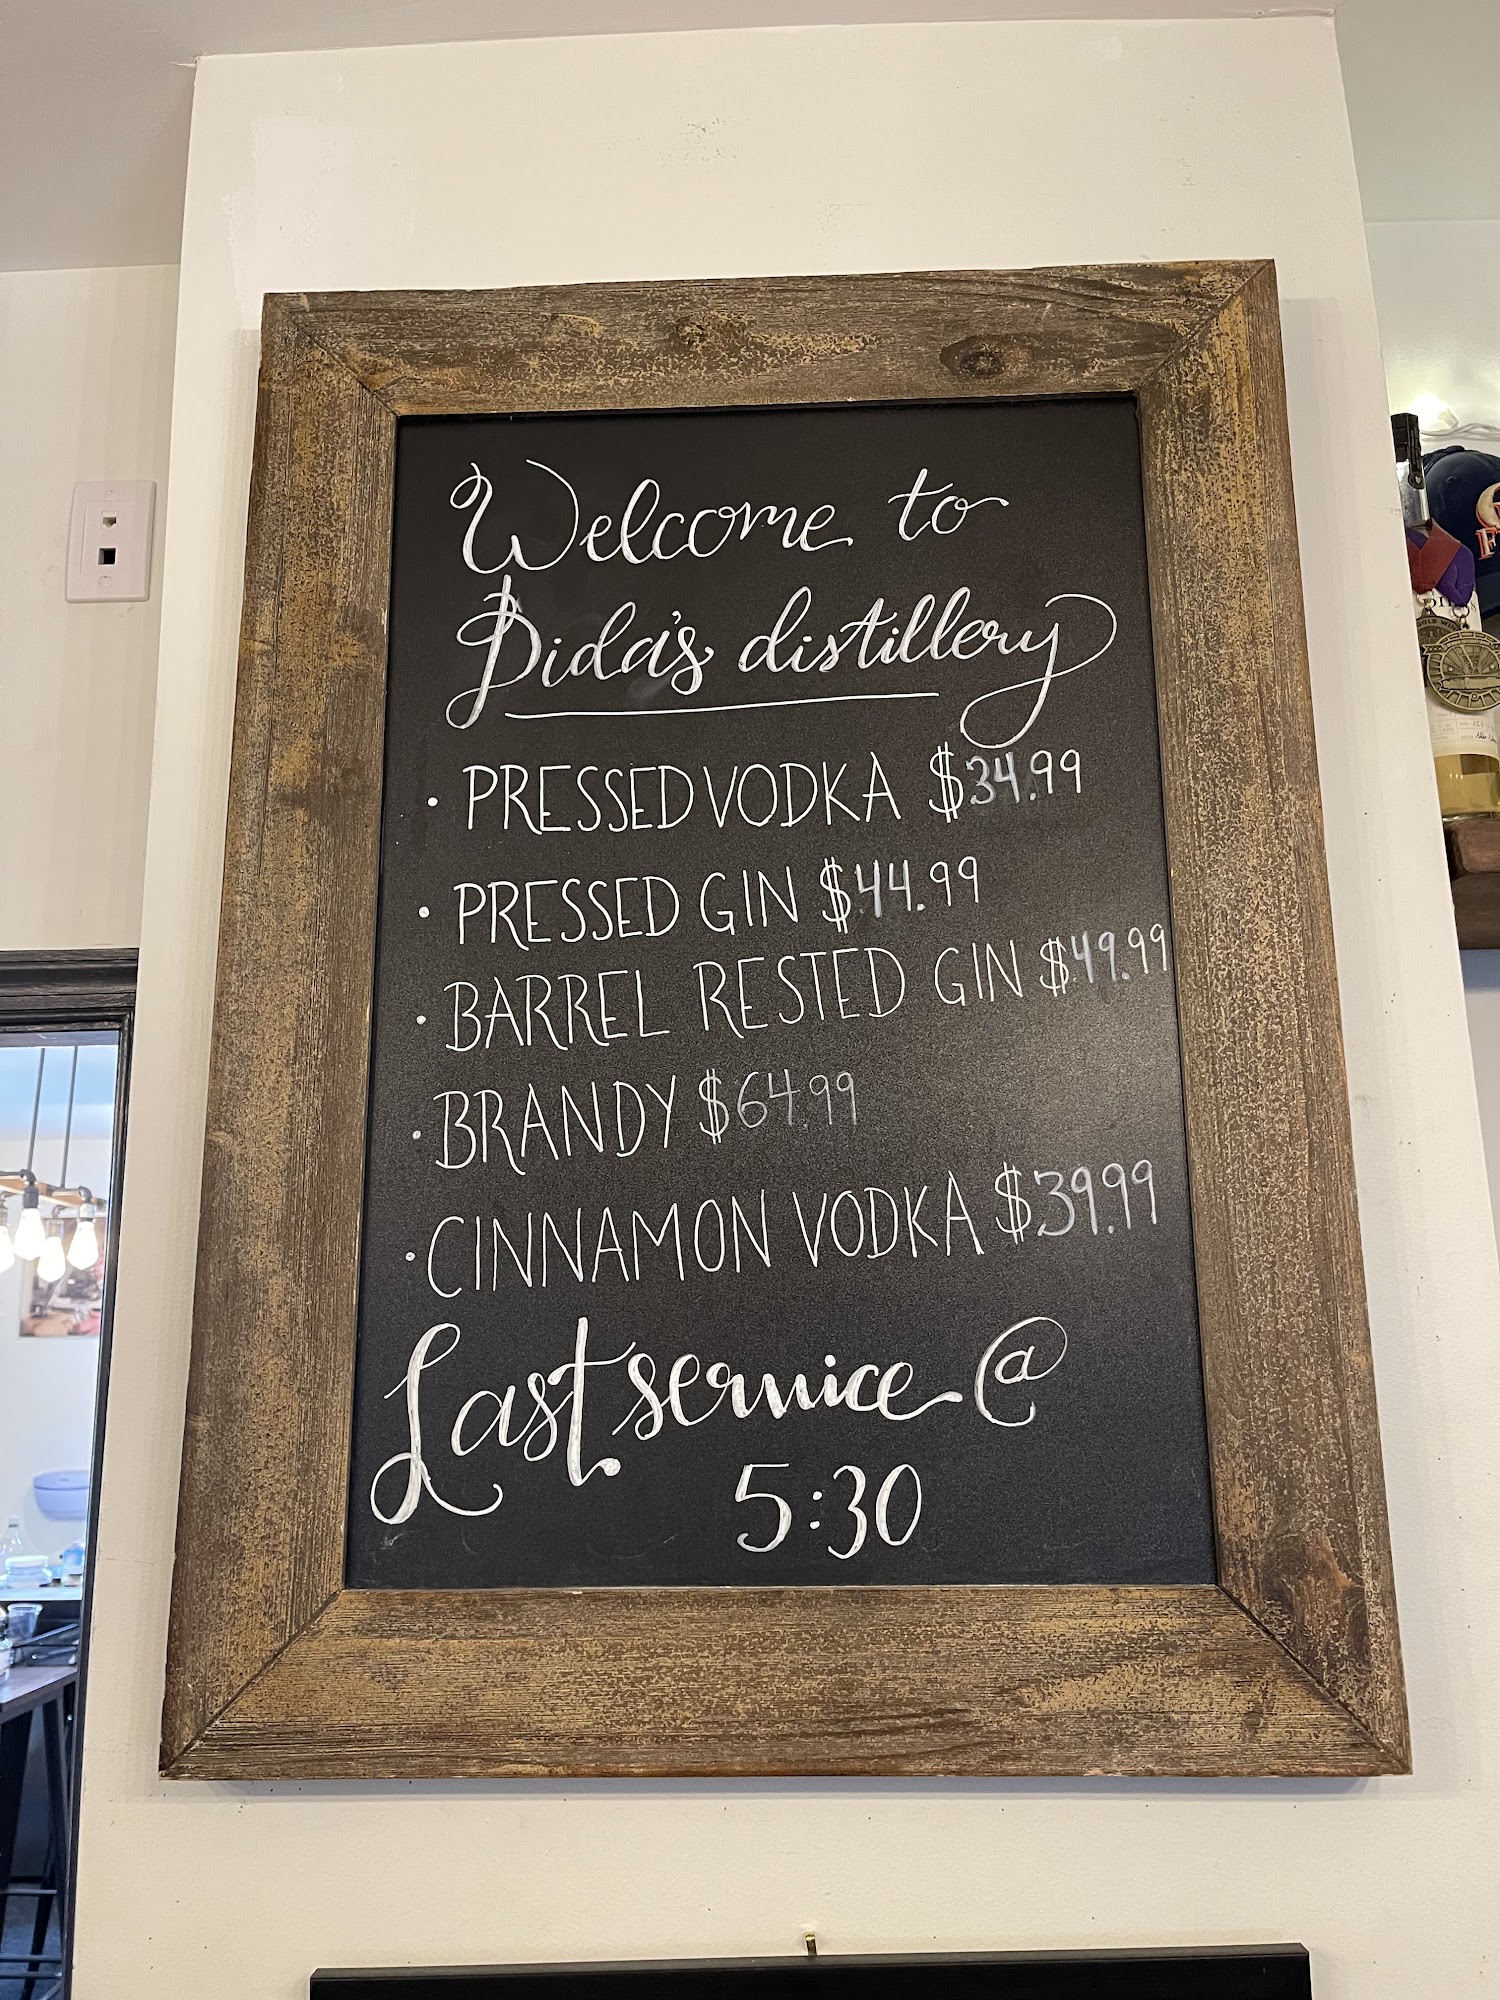 Welcome to
Dida's distillery
• PRESSED VODKA $34.99
• PRESSED GIN $44.99
• BARREL RESTED GIN $49.99
• BRANDY $64.99
• CINNAMON VODKA $39.99
Last service @
5:30